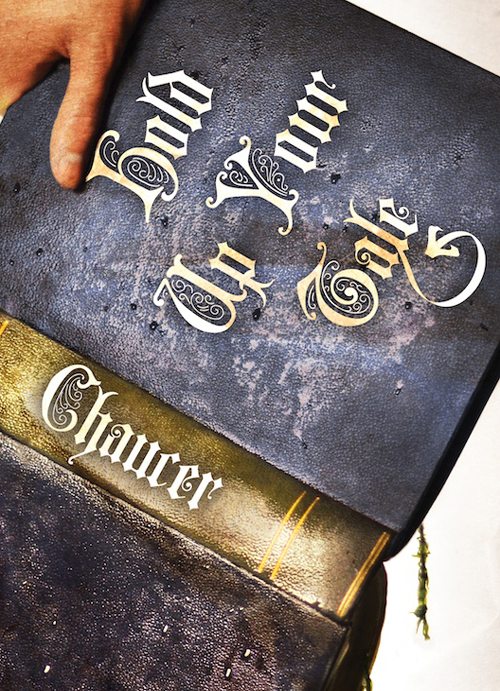 Hold Your
Up Tale
Chaucer